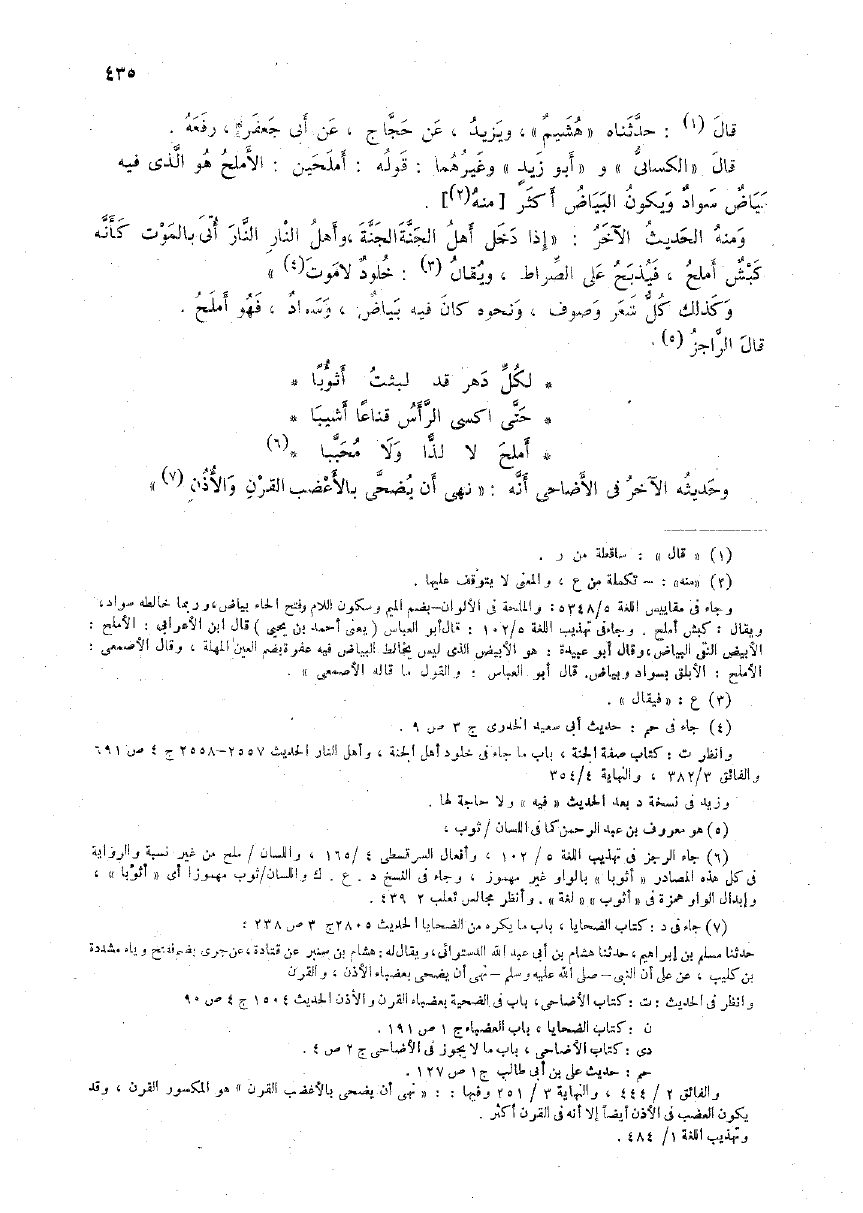 ٤٣٥
قالَ (١) : حدَّثَناه «هُشَيمٌ» ، ويَزيدُ ، عَن حَجَّاج ، عَن أبى جَعفَر ، رفَعَهُ .
قالَ «الكسائىُّ » و «أبو زَيدٍ » وغَيرُهُما : قَولُه : أملَحَين : الأَملَحُ هُو الَّذى فيه
بَيَاضٌ سَوادٌ وَيكونُ البَيَاضُ أَكثَر [ منهُ(٢)] .
وَمنهُ الحَديثُ الآخَرُ : «إذا دَخَل أهلُ الجَنَّة الجَنَّةَ ،وأهلُ النارِ النَّارَ أُتِىَ بالمَوْت كَأَنَّه
كَبْشٌ أملَحُ ، فَيُذبَحُ عَلى الصِّراط ، ويُقالُ (٣) : خُلودٌ لامَوتَ(٤) »
وَكَذلك كُلُّ شَعَر وَصوف ، وَنحوه كانَ فيه بَياضٌ ، وَسَوادٌ ، فَهُو أَملَحُ .
قالَ الرَّاجزُ (٥) .
* لكُلِّ دَهرٍ قد لبثتُ أَثوُبًا *
* حَتَّى اكسى الرَّأسُ قناعًا أَشيبَا *
* أملحَ لا لذًّا وَلَا مُحَبَّبا *(٦)
وحَديثُه الآخرُ فى الأَضاحى أنَّه : « نهى أن يُضحَّى بالأَعْضب القَرْنِ وَالأُذُنِ (٧) »
(١) « قال » : ساقطة من ر .
(٢) «منه» : – تكملة من ع ، والمعنى لا يتوقف عليها .
وجاء فى مقاييس اللغة ٥/٣٤٨ : والملحة فى الألوان–بضم الميم وسكون اللام وفتح الحاء بياض،وربما خالطه سواد،
ويقال : كبش أملح . وجاءفى تهذيب اللغة ١٠٢/٥ : قالأبو العباس ( يعنى أحمد بن يحيى ) قال ابن الأعرابى : الأملح :
الأبيض النقى البياض،وقال أبو عبيدة : هو الأبيض الذى ليس يخالط البياض فيه عفرةبضم العين المهملة ، وقال الأصمعى :
الأملح : الأبلق بسواد وبياض. قال أبو العباس : والقول ما قاله الأصمعى » .
(٣) ع : « فيقال » .
(٤) جاء فى حم : حديث أبى سعيد الخدرى ج ٣ ص ٩ .
وانظر ت : كتاب صفة الجنة ، باب ما جاء فى خلود أهل الجنة ، وأهل النار الحديث ٢٥٥٧–٢٥٥٨ ج ٤ ص ٦٩١
والفائق ٣٨٢/٣ ، والنهاية ٣٥٤/٤
وزيد فى نسخة د بعد الحديث « فيه » ولا حاجة لها .
(٥) هو معروف بن عبد الرحمن كما فى اللسان / ثوب ،
(٦) جاء الرجز فى تهذيب اللغة ٥/ ١٠٢ ، وأفعال السرقسطى ٤ /١٦٥ ، واللسان / ملح من غير نسبة والرواية
فى كل هذه المصادر « أثوبا » بالواو غير مهموز ، وجاء فى النسخ د . ع . ك واللسان/ثوب مهموزا أى « أثؤبا » ،
وإبدال الواو همزة فى « أثوب » « لغة » . وأنظر مجالس ثعلب ٢ ٤٣٩ .
(٧) جاءفى د : كتاب الضحايا ، باب ما يكره من الضحايا الحديث ٢٨٠٥ج ٣ ص ٢٣٨ :
حدثنا مسلم بن إبراهيم، حدثنا هشام بن أبى عبد الله الدستوائى،ويقالله: هشام بن سنبر عن قتادة،عن جرى بضم ففتح وياء مشددة
بن كليب ، عن على أن النبى – صلى الله عليه وسلم – نهى أن يضحى بعضباء الأذن ، والقرن
وانظر فى الحديث : ت : كتاب الأضاحى، باب فى الضحية بعضباء القرن والأذن الحديث ١٥٠٤ ج ٤ ص ٩٠
ن : كتاب الضحايا ، باب العضباءج ١ ص ١٩١ .
دى : كتاب الأضاحى ، باب ما لا يجوز فى الأضاحى ج ٢ ص ٤ .
حم : حديث على بن أبى طالب ج١ ص ١٢٧ .
والفائق ٢ / ٤٤٤ ، والنهاية ٣ / ٢٥١ وفيها : : « نهى أن يضحى بالأعضب القرن » هو المكسور القرن ، وقد
يكون العضب فى الأذن أيضاً إلا أنه فى القرن أكثر .
وتهذيب اللغة ١/ ٤٨٤ .